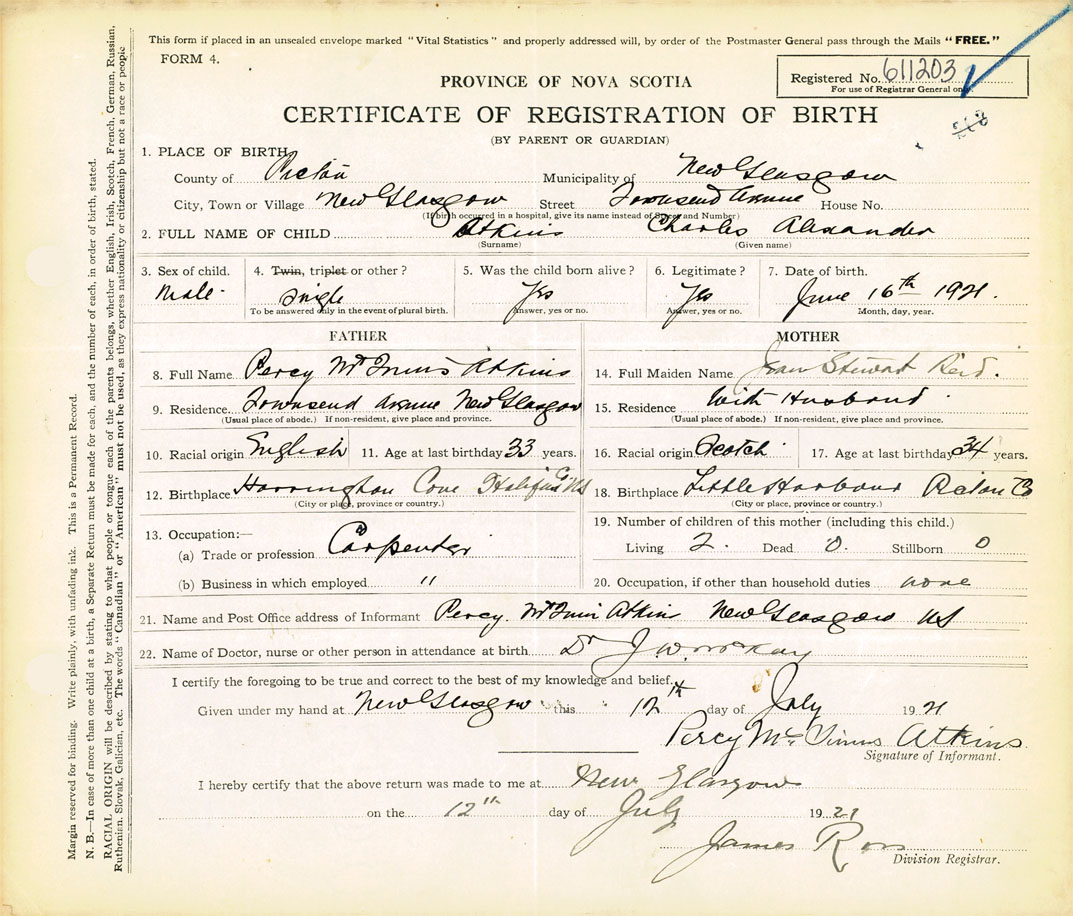 This form if placed in an unsealed envelope marked "Vital Statistics" and properly addressed will, by order of the Postmaster General pass through the Mails "FREE."
FORM 4.
Registered No. 611203
For use of Registrar General only.
PROVINCE OF NOVA SCOTIA
CERTIFICATE OF REGISTRATION OF BIRTH
(BY PARENT OR GUARDIAN)
1. PLACE OF BIRTH
County of Pictou Municipality of New Glasgow
City, Town or Village New Glasgow Street Townsend Avenue House No.
(If birth occurred in a hospital, give its name instead of Street and Number)
2. FULL NAME OF CHILD Atkins Charles Alexander
(Surname) (Given name)
3. Sex of child. 4. Twin, triplet or other? 5. Was the child born alive? 6. Legitimate? 7. Date of birth.
Male. Single Yes Yes June 16th 1921.
To be answered only in the event of plural birth. Answer, yes or no. Answer, yes or no. Month, day, year.
FATHER MOTHER
8. Full Name Percy Atkins 14. Full Maiden Name Jean Stewart Reid.
9. Residence Townsend Avenue New Glasgow 15. Residence With Husband
(Usual place of abode.) If non-resident, give place and province. (Usual place of abode.) If non-resident, give place and province.
10. Racial origin English 11. Age at last birthday 33 years. 16. Racial origin Scotch 17. Age at last birthday 34 years.
12. Birthplace Harrington Cove Halifax Co NS 18. Birthplace Little Harbour Pictou Co
(City or place, province or country.) (City or place, province or country.)
13. Occupation:— 19. Number of children of this mother (including this child.)
(a) Trade or profession Carpenter Living 2. Dead 0. Stillborn 0
(b) Business in which employed " 20. Occupation, if other than household duties none
21. Name and Post Office address of Informant Percy Atkin New Glasgow NS
22. Name of Doctor, nurse or other person in attendance at birth Dr J W McKay
I certify the foregoing to be true and correct to the best of my knowledge and belief.
Given under my hand at New Glasgow this 12th day of July 1921
Percy Atkins
Signature of Informant.
I hereby certify that the above return was made to me at New Glasgow
on the 12th day of July 1921
James Ross
Division Registrar.
Margin reserved for binding. Write plainly, with unfading ink. This is a Permanent Record.
N. B.—In case of more than one child at a birth, a Separate Return must be made for each, and the number of each, in order of birth, stated.
RACIAL ORIGIN will be described by stating to what people or tongue each of the parents belongs, whether English, Irish, Scotch, French, German, Russian,
Ruthenian, Slovak, Galician, etc. The words "Canadian" or "American" must not be used, as they express nationality or citizenship but not a race or people